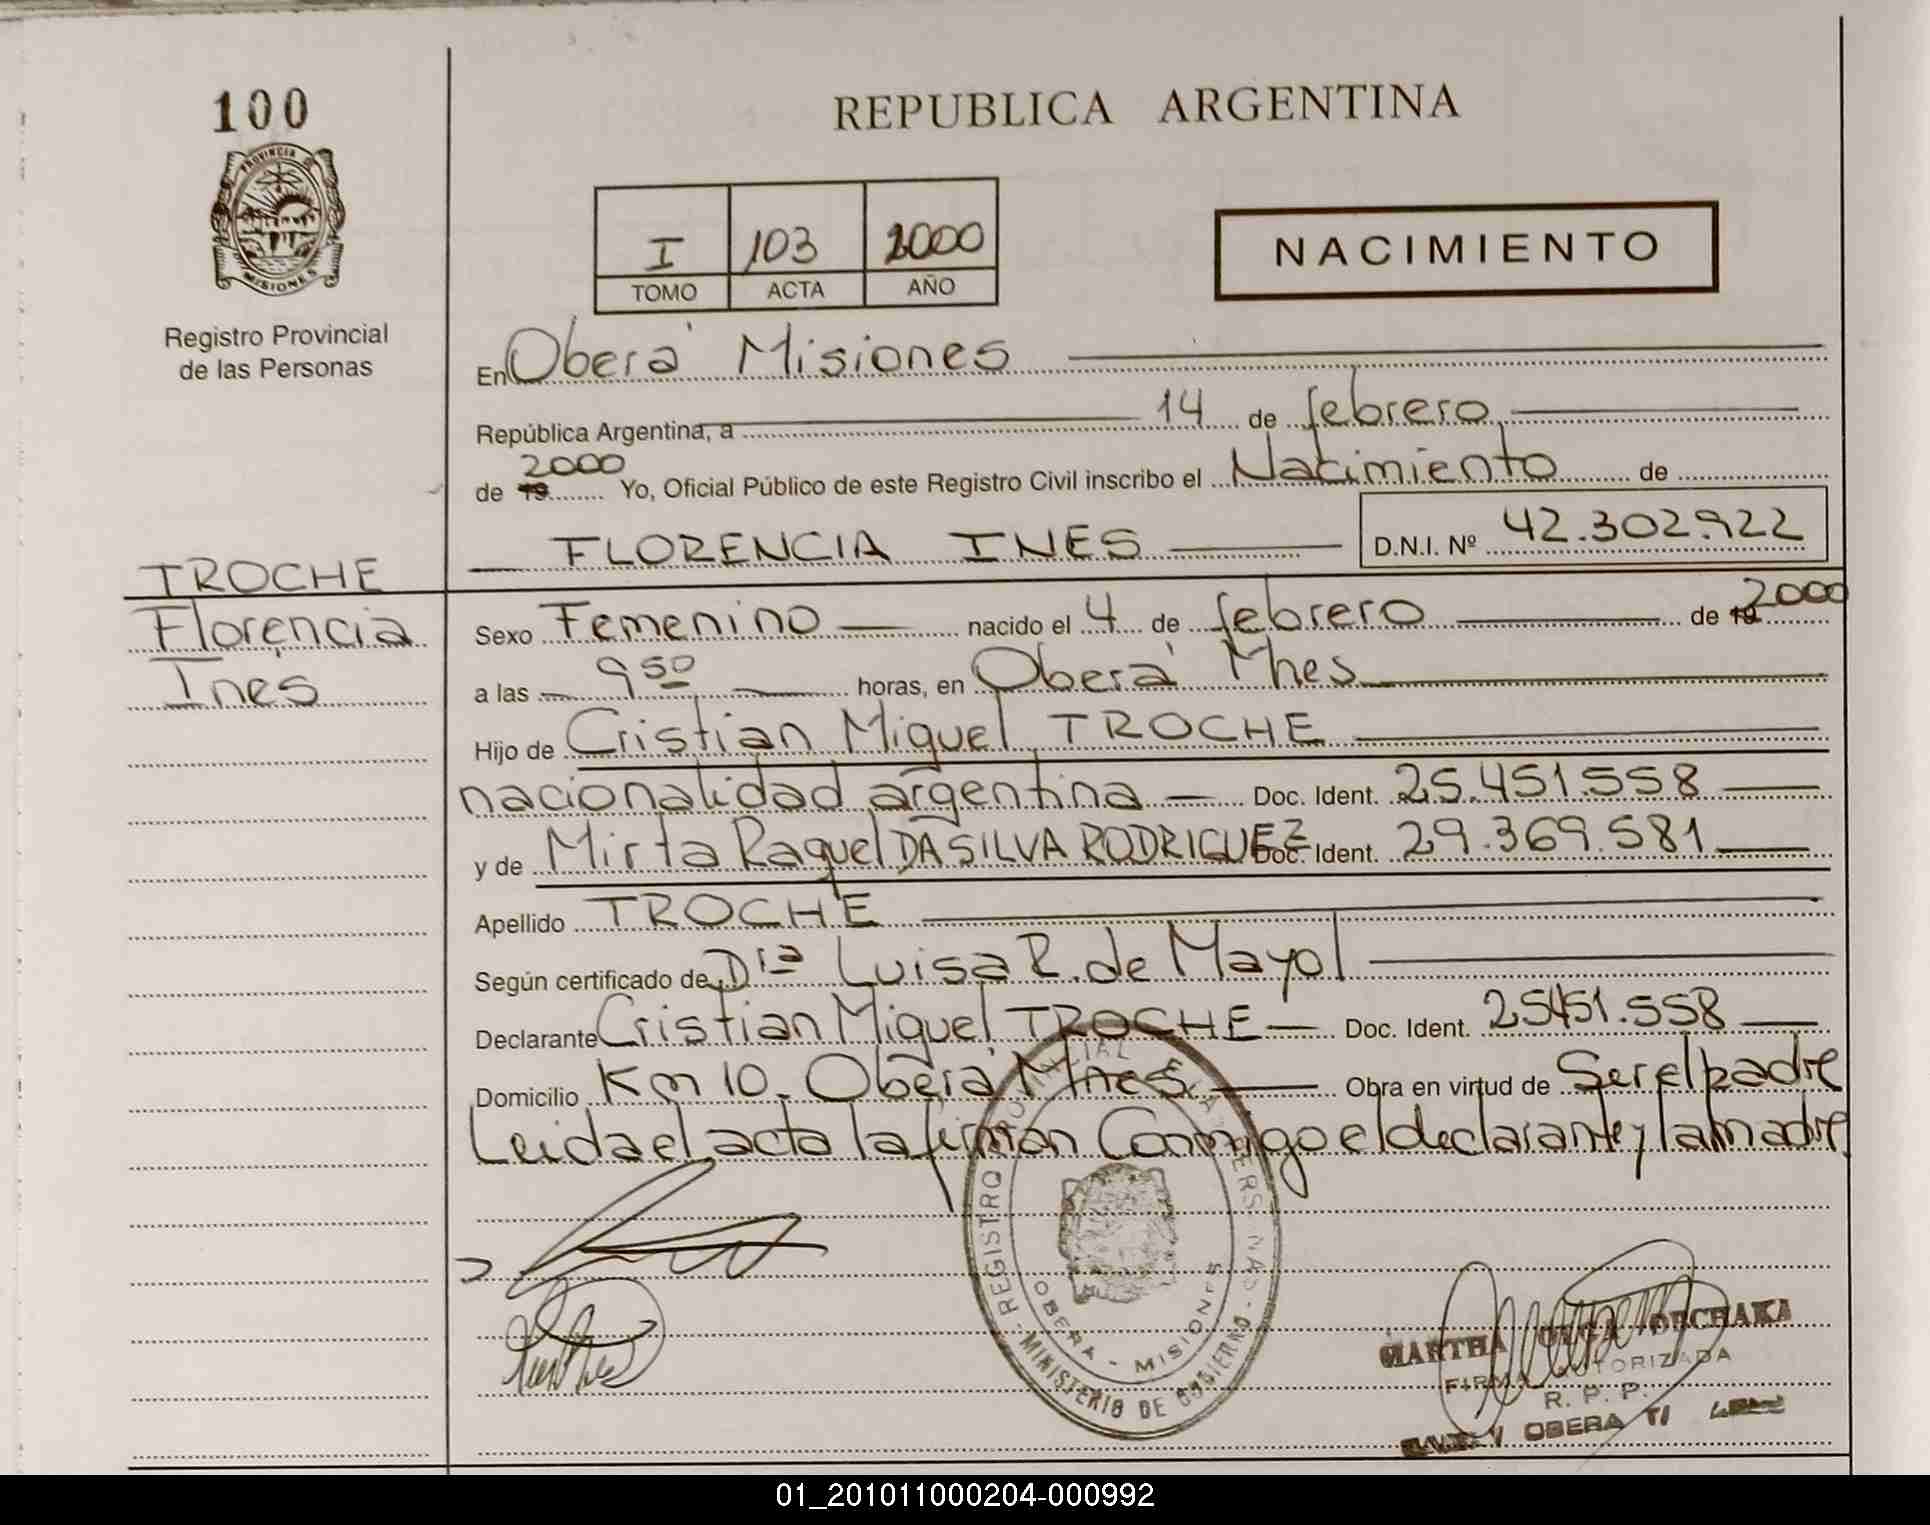 100
PROVINCIA DE
MISIONES
Registro Provincial
de las Personas
REPUBLICA ARGENTINA
I 103 2000
TOMO ACTA AÑO
NACIMIENTO
En Oberá Misiones
República Argentina, a 14 de febrero
de 19 2000 Yo, Oficial Público de este Registro Civil inscribo el Nacimiento de
FLORENCIA INES D.N.I. Nº 42.302.922
TROCHE
Florencia
Ines
Sexo Femenino nacido el 4 de febrero de 19 2000
a las 9 50 horas, en Oberá Mnes
Hijo de Cristian Miguel TROCHE
nacionalidad argentina Doc. Ident. 25.451.558
y de Mirta Raquel DA SILVA RODRIGUEZ Doc. Ident. 29.369.581
Apellido TROCHE
Según certificado de Dra Luisa R. de Mayol
Declarante Cristian Miguel TROCHE Doc. Ident. 25451.558
Domicilio Km 10. Oberá Mnes. Obra en virtud de Ser el padre
Leida el acta la firman Conmigo el declarante y la madre
REGISTRO
OBERA - MISIONES
MINISTERIO DE GOBIERNO
MARTHA OLGA
FIRMA AUTORIZADA
R. P. P.
OBERA
01_201011000204-000992